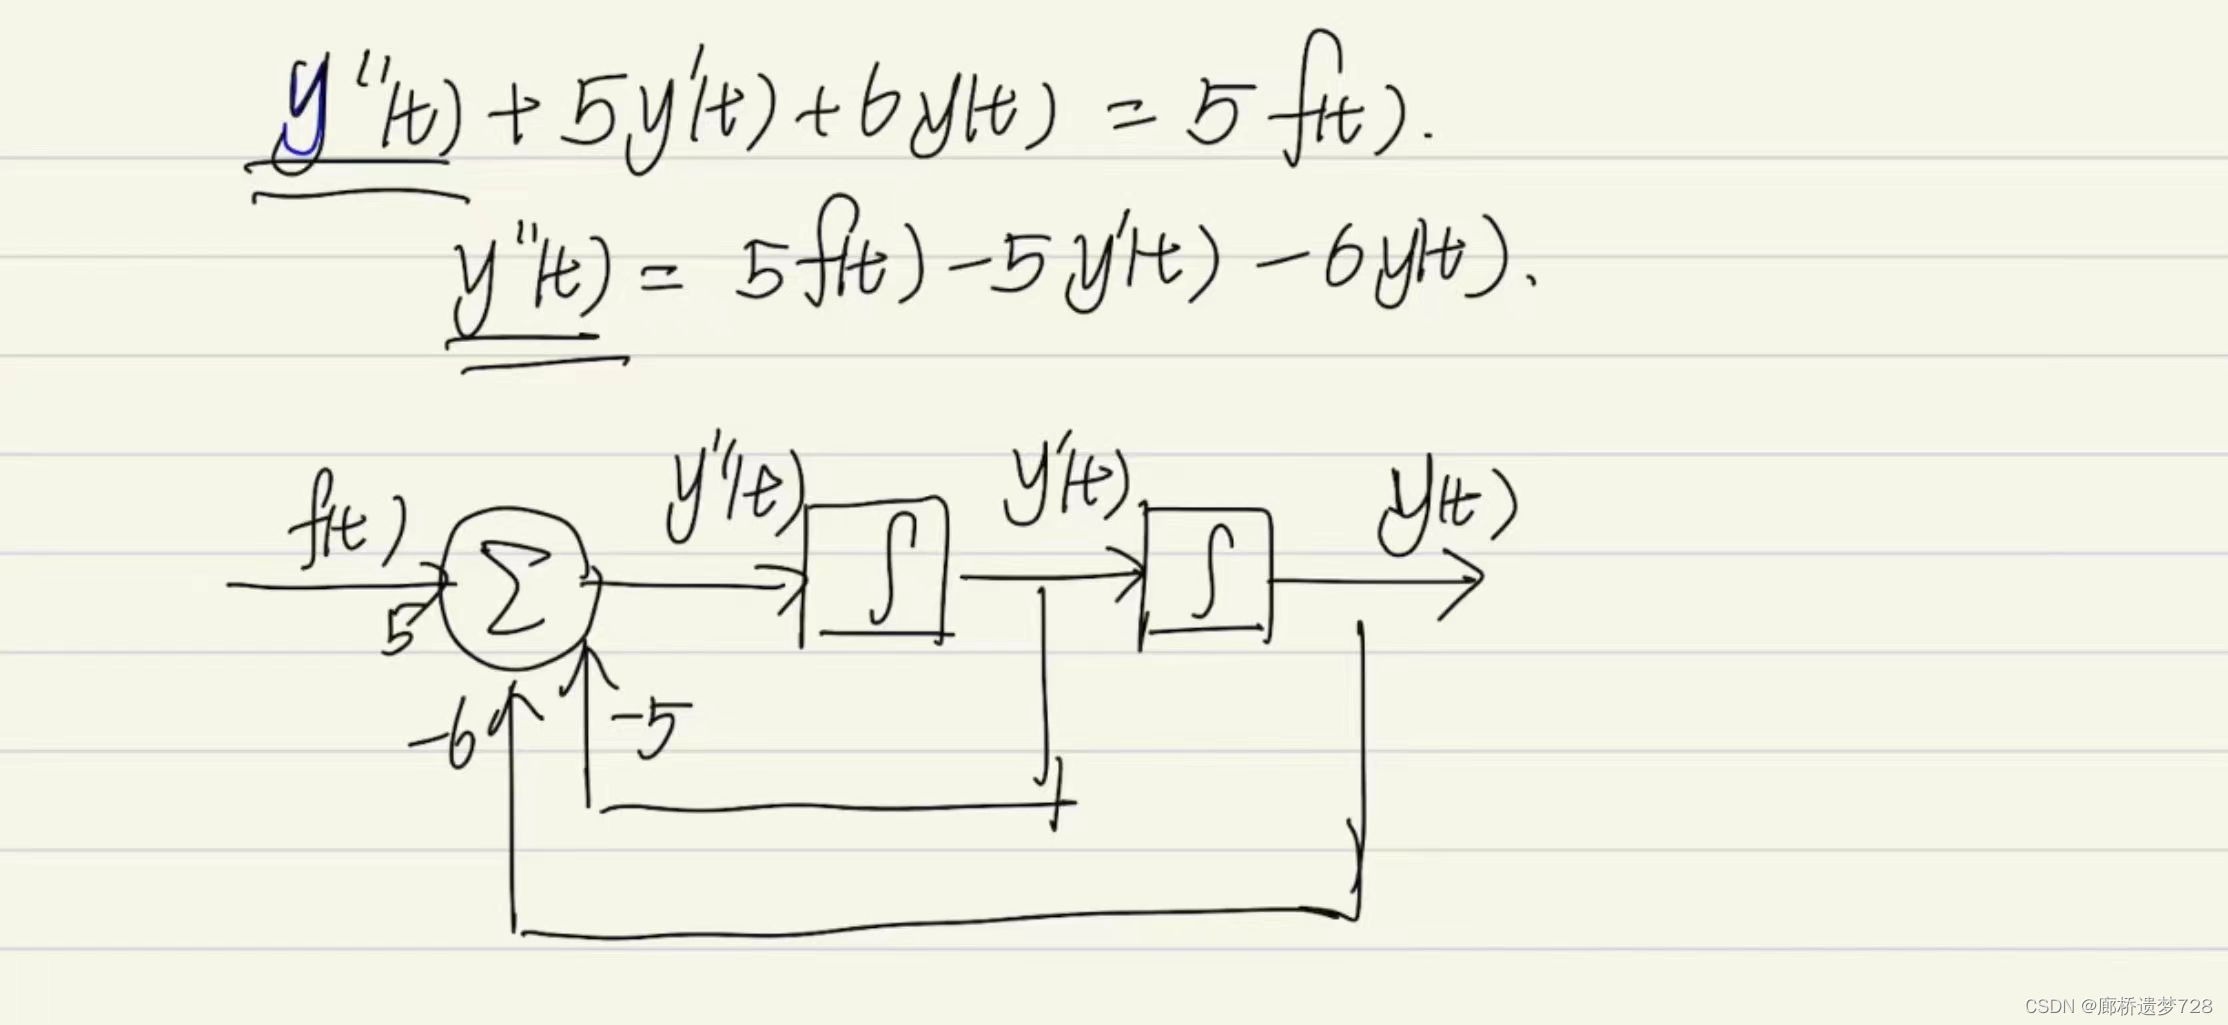 y''(t) + 5y'(t) + 6y(t) = 5f(t).
y''(t) = 5f(t) - 5y'(t) - 6y(t).
f(t) 5 Σ y''(t) ∫ y'(t) ∫ y(t)
-6 -5
CSDN @廊桥遗梦728